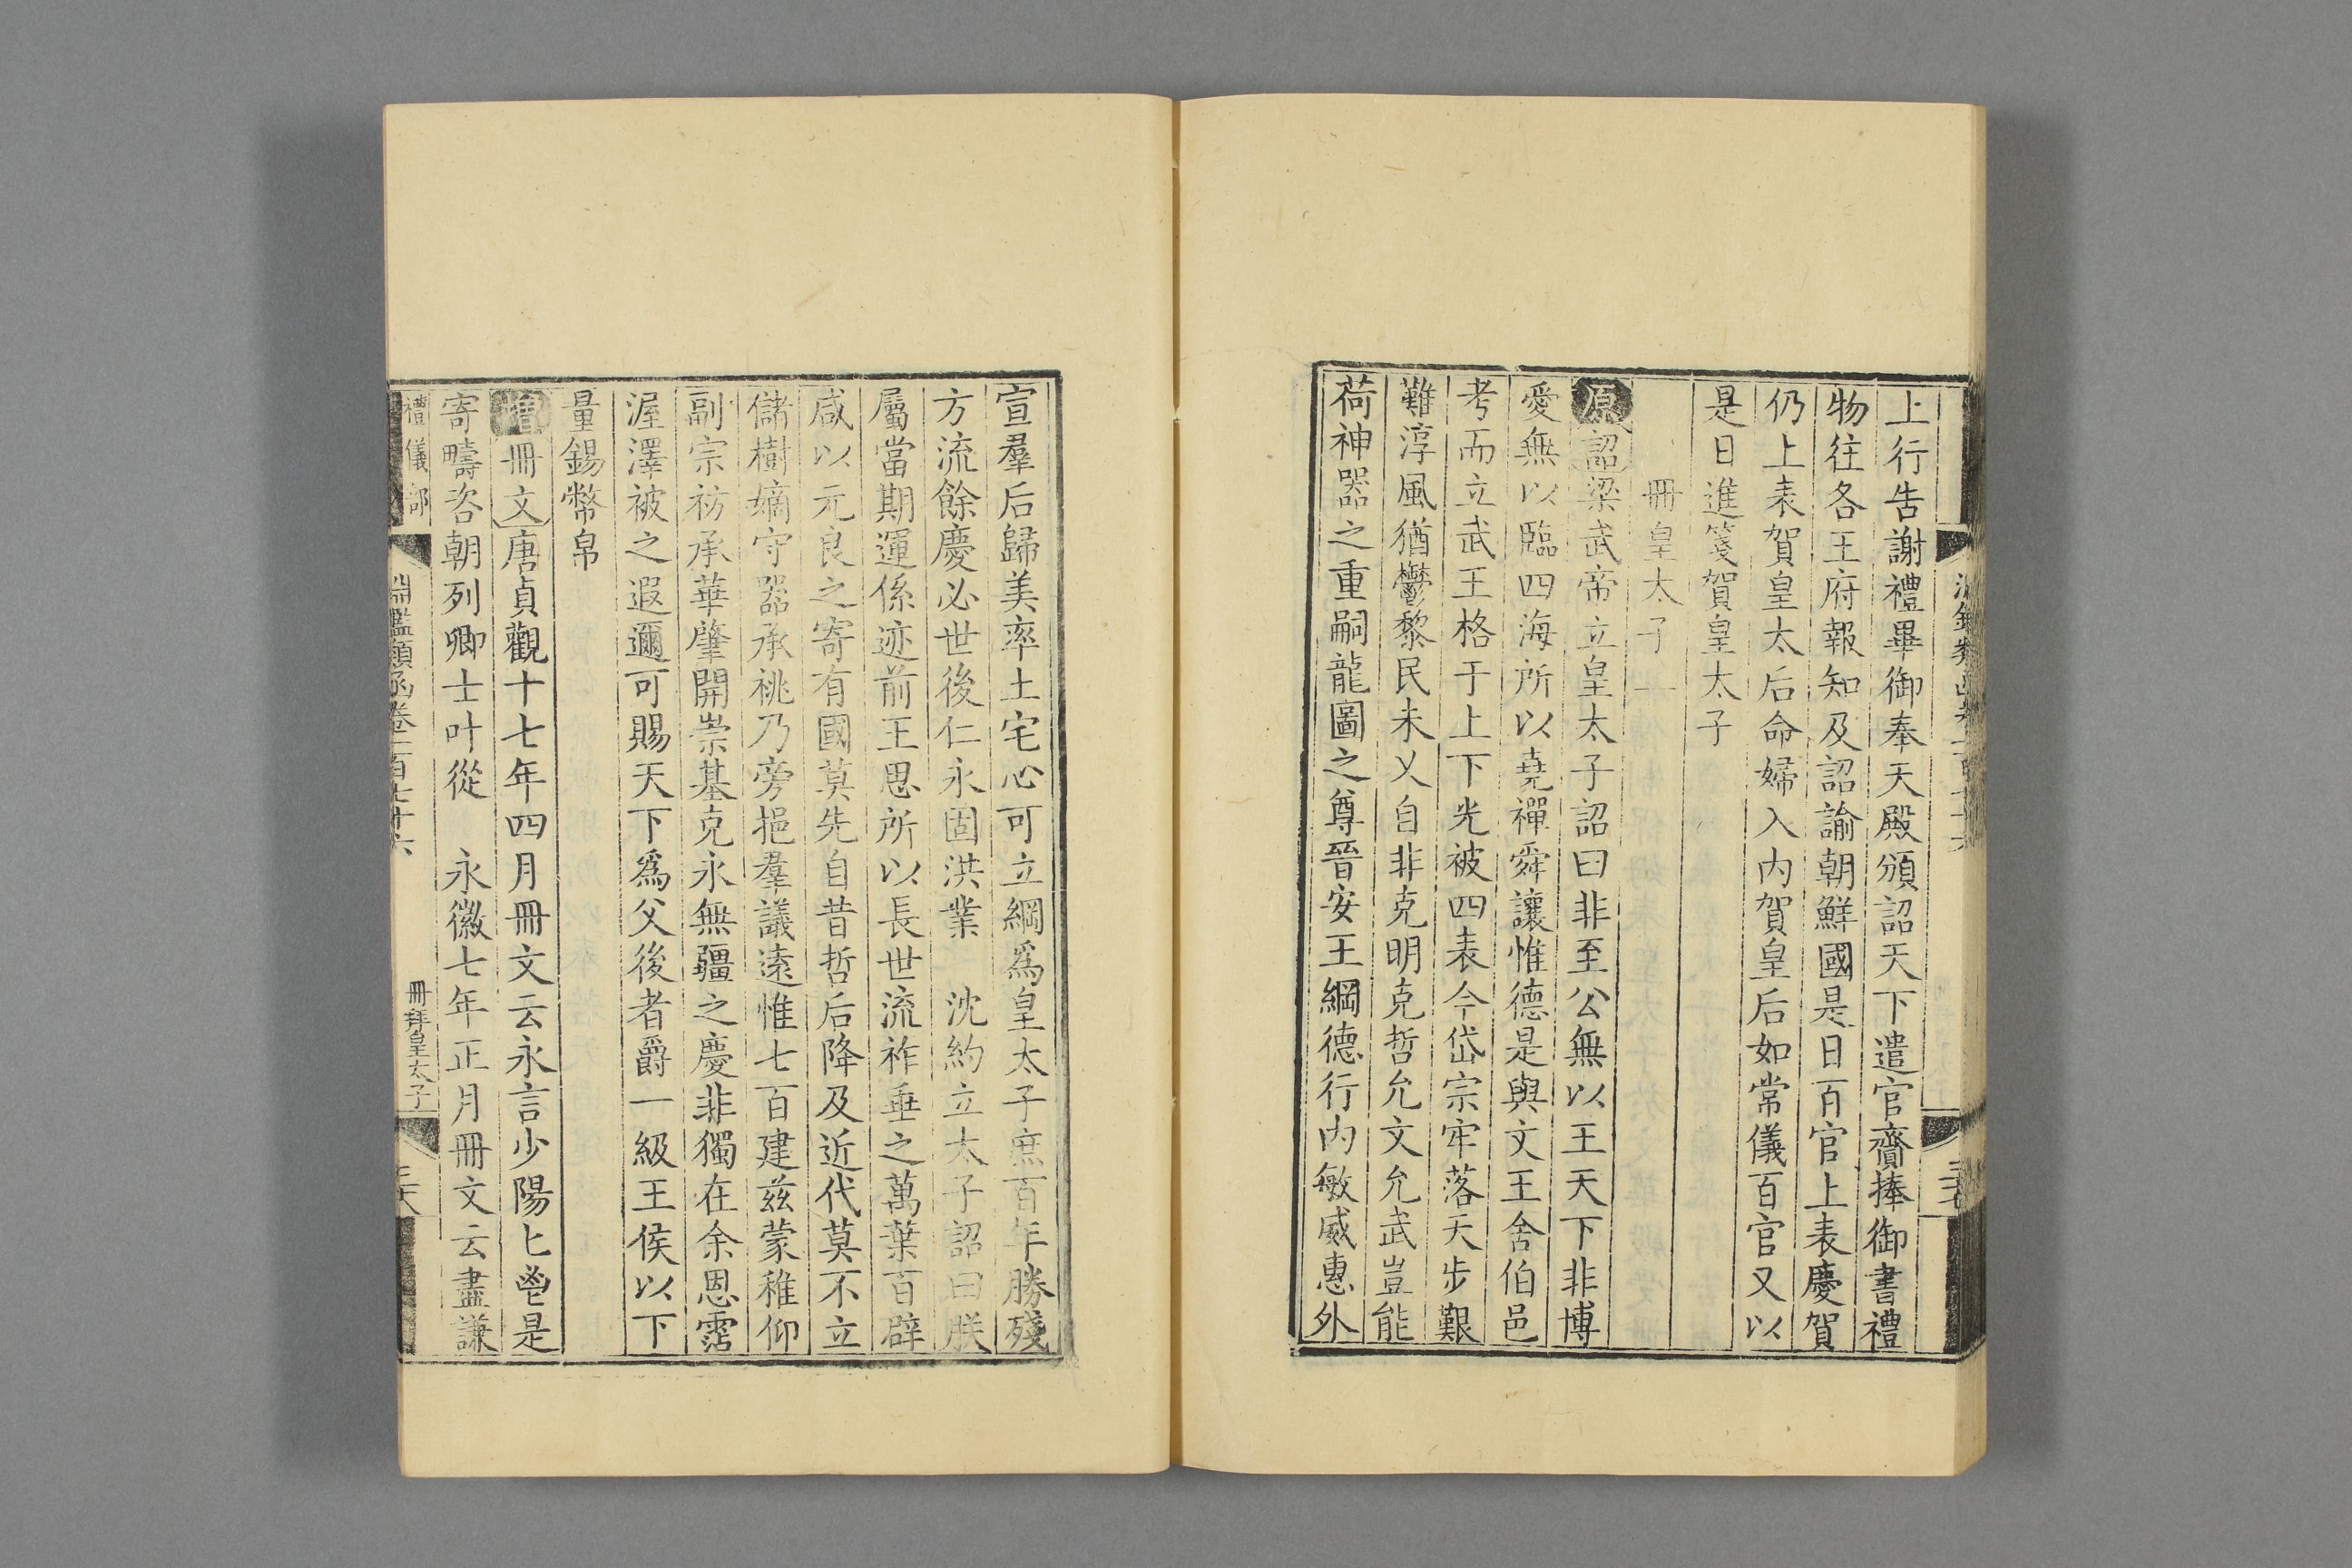 上行告謝禮畢御奉天殿頒詔天下遣官齎捧御書禮
物往各王府報知及詔諭朝鮮國是日百官上表慶賀
仍上表賀皇太后命婦入內賀皇后如常儀百官又以
是日進箋賀皇太子
冊皇太子一
原詔梁武帝立皇太子詔曰非至公無以王天下非博
愛無以臨四海所以堯禪舜讓惟德是與文王舍伯邑
考而立武王格于上下光被四表今岱宗牢落天步艱
難淳風猶鬱黎民未乂自非克明克哲允文允武豈能
荷神器之重嗣龍圖之尊晉安王綱德行內敏威惠外
宣羣后歸美率土宅心可立綱爲皇太子庶百年勝殘
方流餘慶必世後仁永固洪業 沈約立太子詔曰朕
屬當期運係迹前王思所以長世流祚垂之萬葉百辟
咸以元良之寄有國莫先自昔哲后降及近代莫不立
儲樹嫡守器承祧乃旁挹羣議遠惟七百建茲蒙稚仰
副宗祊承華肇開崇基克永無疆之慶非獨在余恩霑
渥澤被之遐邇可賜天下爲父後者爵一級王侯以下
量錫幣帛
增冊文唐貞觀十七年四月冊文云永言少陽匕鬯是
寄疇咨朝列卿士叶從 永徽七年正月冊文云盡謙
禮儀部
淵鑑類函卷一百七十六
冊拜皇太子